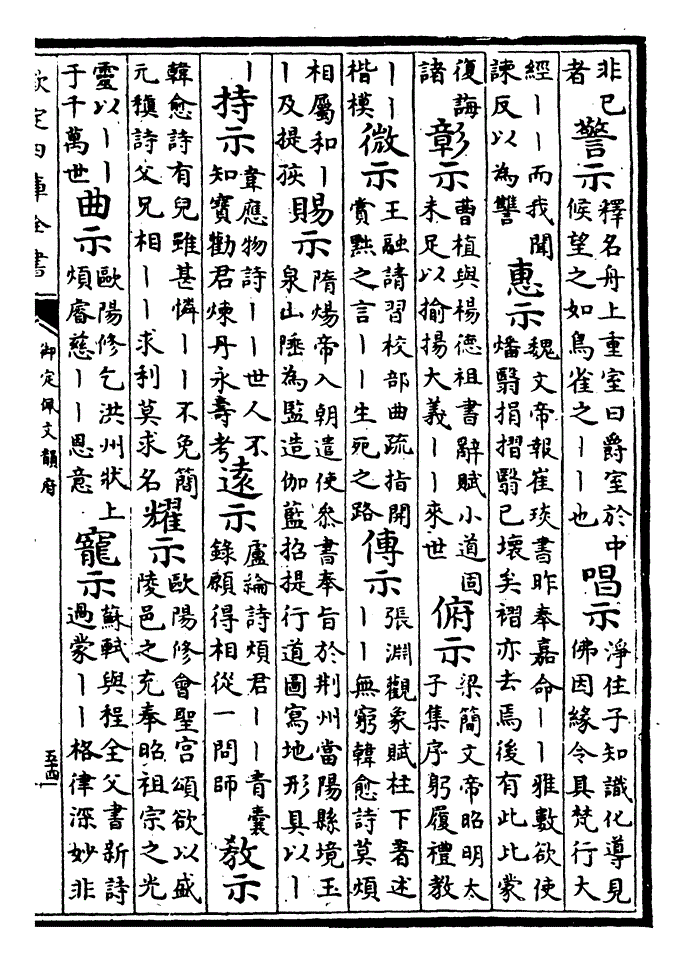 非已者警示釋名舟上重室曰爵室於中候望之如鳥雀之丨丨也唱示淨住子知識化導見佛因緣令具梵行大
經丨丨而我聞諫反以為讐惠示魏文帝報崔琰書昨奉嘉命丨丨雅數欲使燔翳捐褶翳已壞矣褶亦去焉後有此比蒙
復誨諸彰示曹植與楊德祖書辭賦小道固未足以揄揚大義丨丨來世俯示梁簡文帝昭明太子集序躬履禮教
丨丨楷模微示王融請習校部曲疏指開賞黜之言丨丨生死之路傳示張淵觀象賦柱下著述丨丨無窮韓愈詩莫煩
相屬和丨丨及提孩賜示隋煬帝入朝遣使叅書奉旨於荆州當陽縣境玉泉山陲為監造伽藍招提行道圖寫地形具以丨
丨持示韋應物詩丨丨世人不知寳勸君煉丹永壽考遠示盧綸詩煩君丨丨青囊錄願得相從一問師教示
韓愈詩有兒雖甚憐丨丨不免簡元稹詩父兄相丨丨求利莫求名耀示歐陽修會聖宮頌欲以盛陵邑之充奉昭祖宗之光
靈以丨丨于千萬世曲示歐陽修乞洪州狀上煩睿慈丨丨恩意寵示蘇軾與程全父書新詩過蒙丨丨格律深妙非
欽定四庫全書
御定佩文韻府
五十四